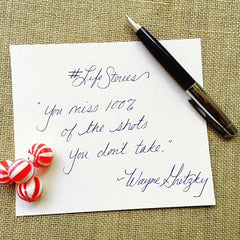 #LifeStories
"You miss 100%
of the shots
you don't take."
~Wayne Gretzky